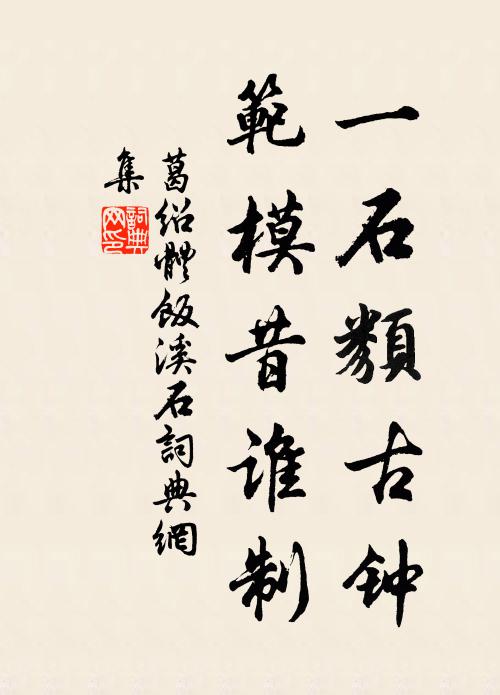 一石類古钟
範模昔谁制
葛绍體飯溪石詞典網
集
詞典
网印